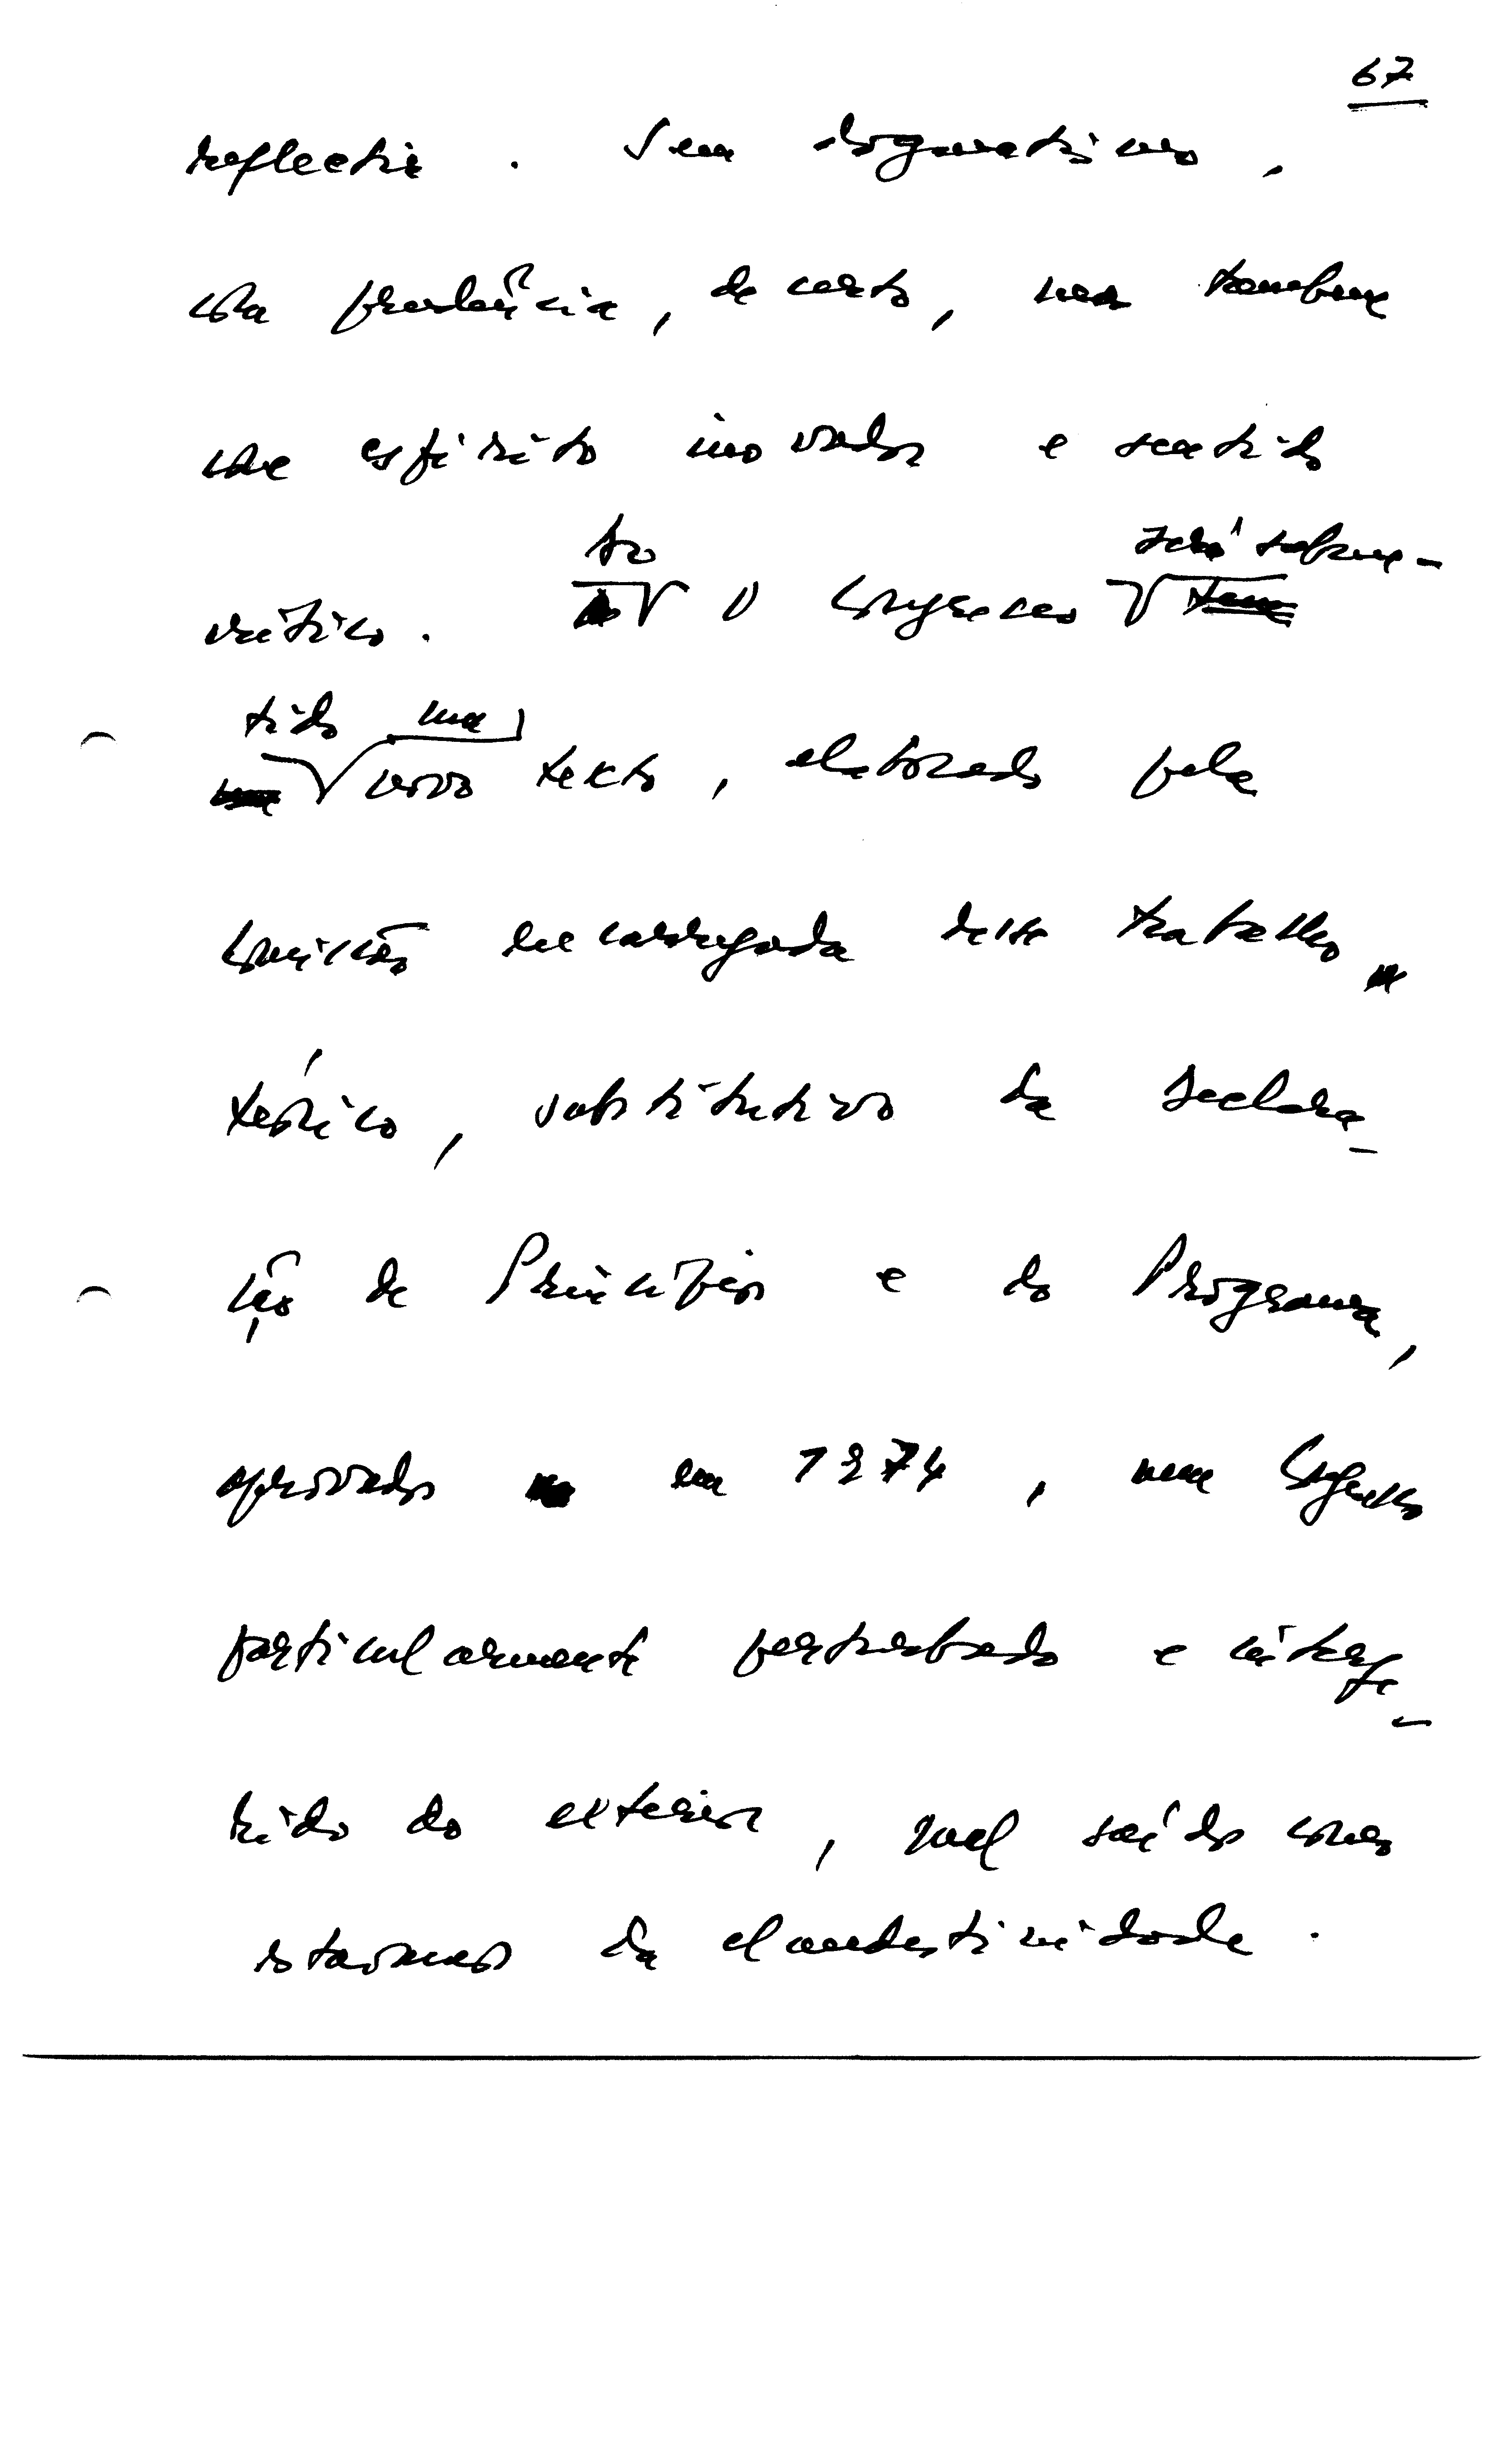 67
reflectir. Sem dogmatismo,
com prudência, de certo, mas também
com espírito inovador e sentido
to será subme-
crítico. Ao Congresso
tido um
novo texto, elaborado pela
comissão encarregada desse trabalho
teórico, substitutivo da Declara-
ção de Princípios e do Programa,
aprovados em 1974, num Congresso
particularmente perturbado e interfe-
rido do exterior, mal saídos como
estávamos da clandestinidade.